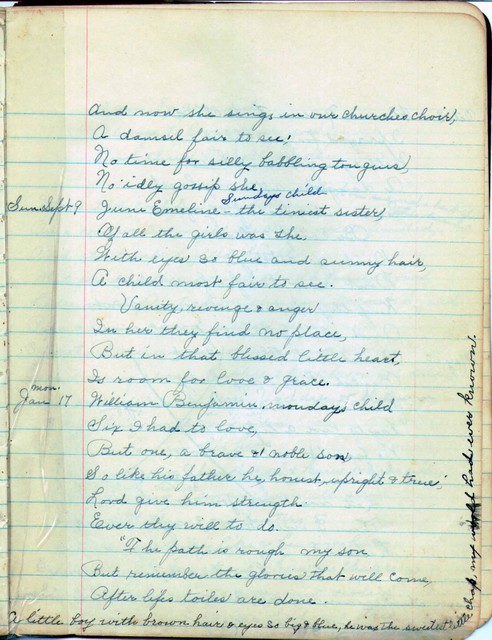 And now she sings in our churches choir,
A damsel fair to see;
No time for silly babbling tongues,
No idly gossip she.
Sundays child
Sun. Sept 9 June Emeline - the tiniest sister,
Of all the girls was she.
With eyes so blue and sunny hair,
A child most fair to see.
Vanity, revenge & anger
In her they find no place,
But in that blessed little heart,
Is room for love & grace.
mon.
Jan 17 William Benjamin, mondays child
Six I had to love,
But one, a brave & noble son
So like his father he, honest, upright & true,
Lord give him strength
Ever thy will to do.
"The path is rough my son
But remember the glories that will come,
After lifes toiles are done.
A little boy with brown hair & eyes so big & blue, he was the sweetest little chap my world had ever known.